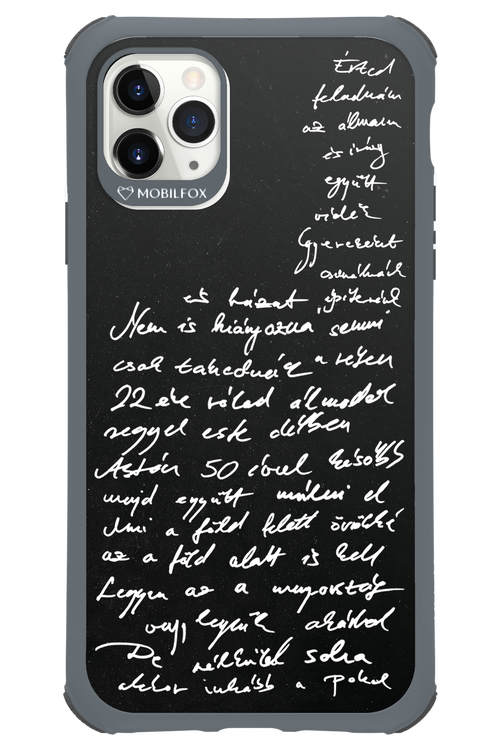 MOBILFOX
Érted
feladnám
az álmam
és így
együtt
veled
Gyerekeket
csinálnánk
és házat építenénk
Nem is hiányozna semmi
csak takednék a részen
22 éve rólad álmodok
reggel este délben
Aztán 50 évvel később
majd együtt múlni el
Ami a föld felett örökké
az a föld alatt is kell
Legyen az a mennyország
vagy legyünk akárhol
De nélküled soha
akkor inkább a pokol